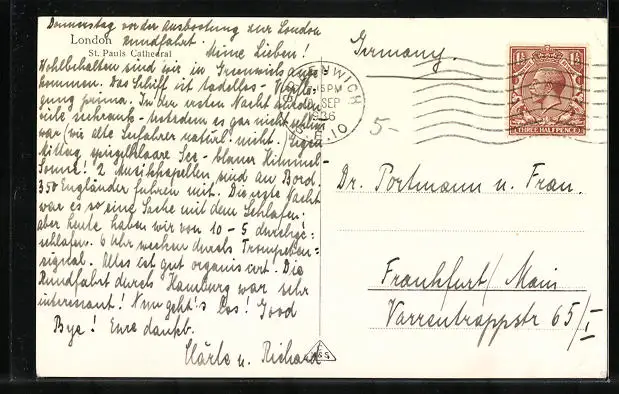 Donnerstag vor der Ausbootung zur London
rundfahrt.
London
St. Pauls Cathedral
Meine Lieben!
Wohlbehalten sind wir in Greenwich ange-
kommen. Das Schiff ist tadellos - Verpfle-
gung prima. In der ersten Nacht
trotzdem es gar nicht schlimm
war (wie alle Seefahrer natürl. nicht. Gegen
Mittag spiegelklare See - blauer Himmel -
Sonne. 2 Musikkapellen sind an Bord.
350 Engländer fuhren mit. Die erste Nacht
war es so eine Sache mit dem Schlafen.
aber heute haben wir von 10 - 5 durchge-
schlafen. 6 Uhr wecken durch Trompeten=
signal. Alles ist gut organisiert. Die
Rundfahrt durch Hamburg war sehr
interessant! Nun geht's los! Good
Bye! Eure dankb.
Clärle u. Richard
Germany.
GREENWICH
15PM
SEP
1936
S.E.10
THREE HALFPENCE
5-
Dr. Portmann u. Frau.
Frankfurt/Main
Varrentrappstr 65/I